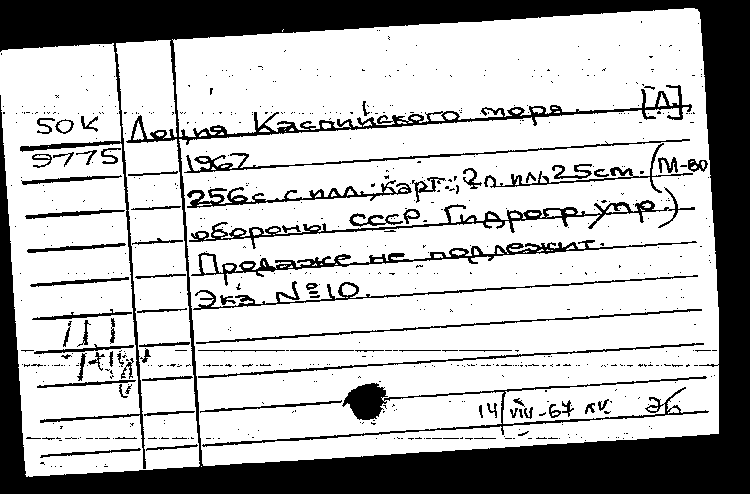 50К Лоция Каспийского моря. [Л.],
9775 1967.
256с. с илл.; карт.; 2л. илл. 25cm. (М-во
обороны СССР. Гидрогр. упр.)
Продаже не подлежит.
Экз. №10.
14/VIII-67